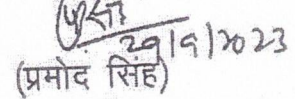 29/9/2023
(प्रमोद सिंह)